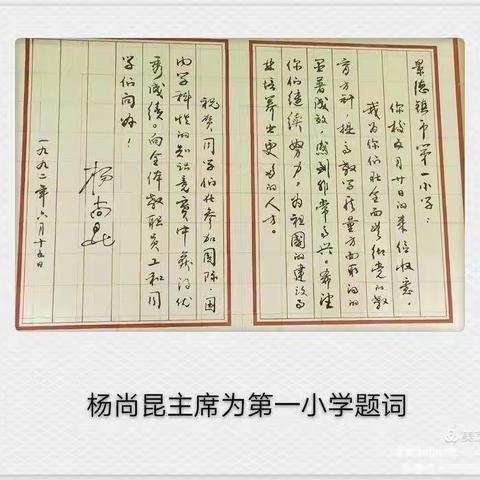 景德镇市第一小学：
你校五月廿日的来信收悉，
我为你们在全面贯彻党的教
育方针，提高教学质量方面取得的
显著成效，感到非常高兴。希望
你们继续努力，为祖國的建设事
業培养出更多的人才。
祝贺同学们在参加国际、国
内学科性的知识竞赛中获得优
秀成绩。向全体教职员工和同
学们问好！
杨尚昆
一九九二年六月十五日
杨尚昆主席为第一小学题词